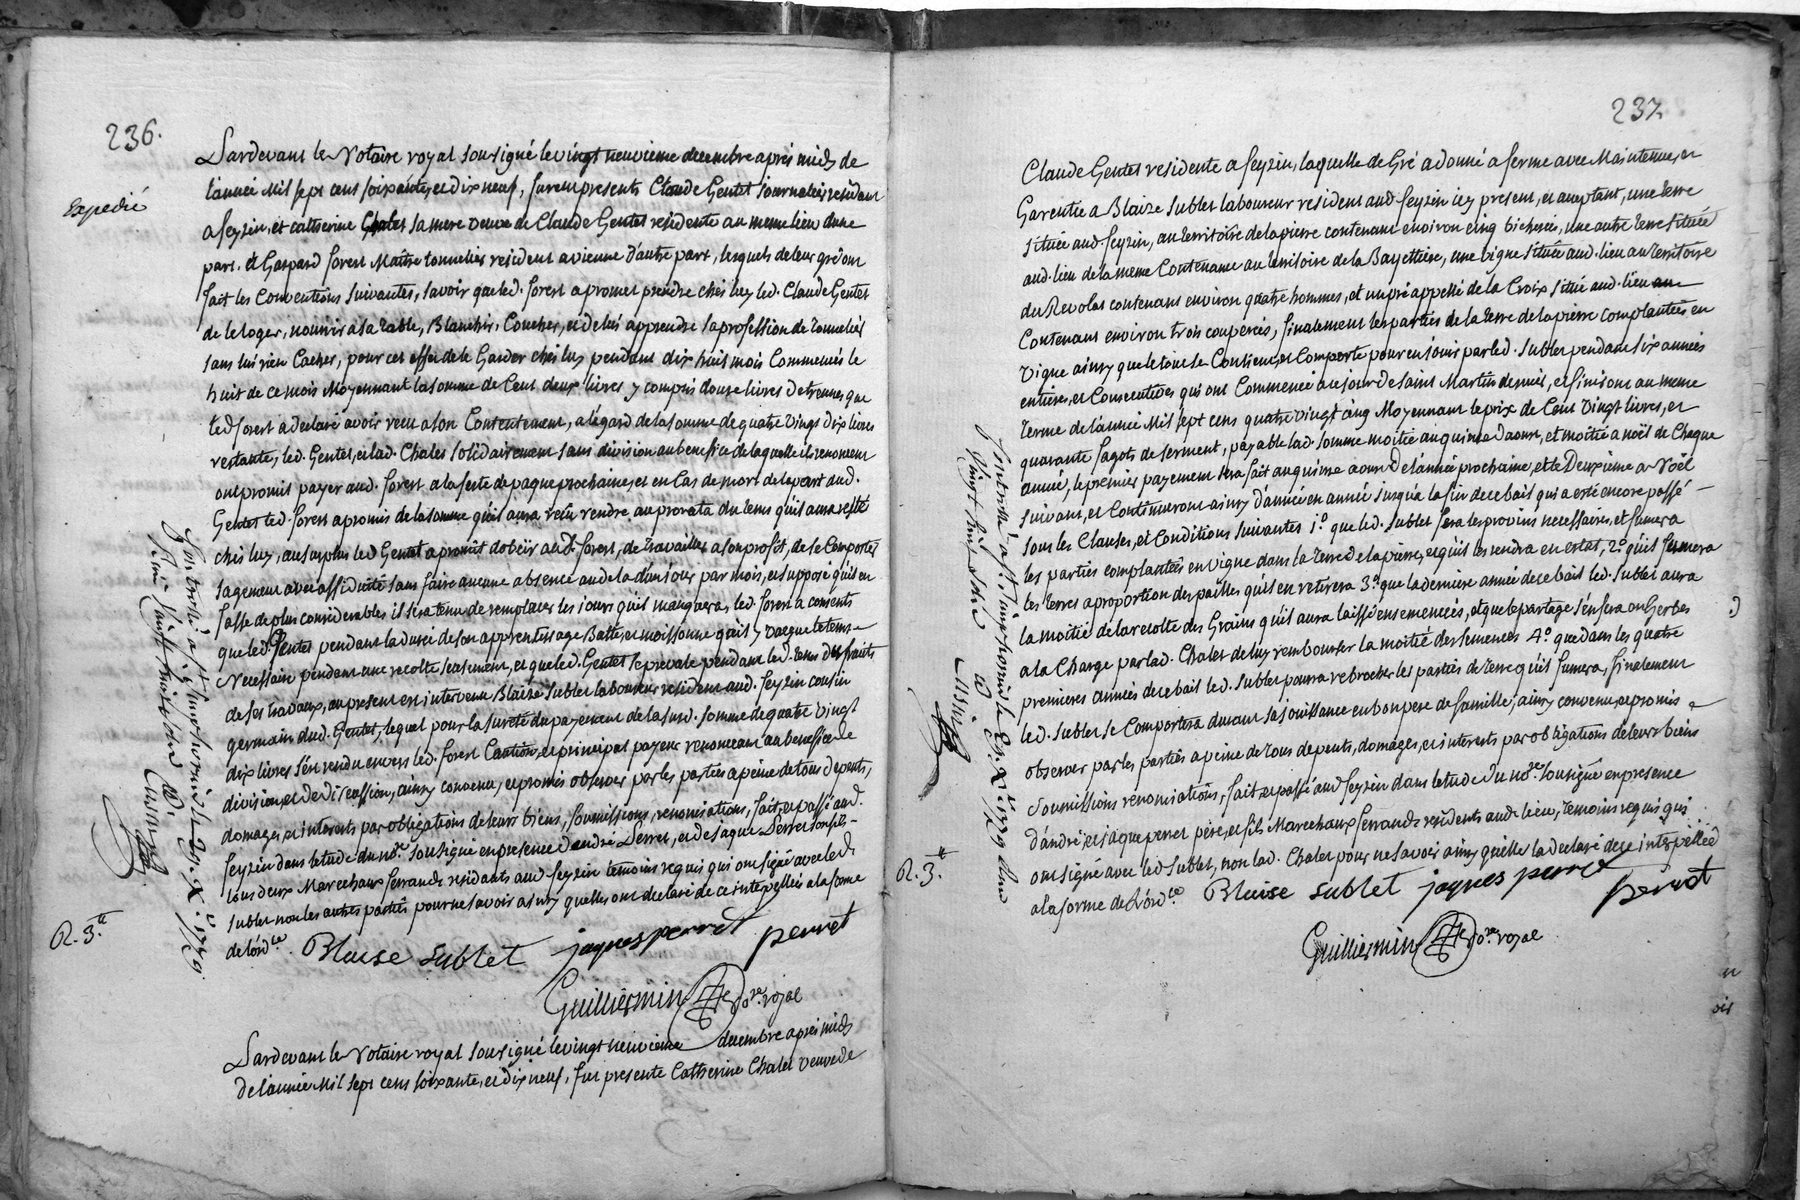 236.
Expedié
Pardevant le Notaire royal soussigné le vingt neuvieme decembre aprés midy de
l'année Mil sept cens soixante, et dix neuf, furent presents Claude Gentet journalier resident
a feyzin, et catherine Chalet sa mere veuve de Claude Gentet residente au meme lieu d'une
part. et Gaspard forest Maître tonnelier resident a vienne d'autre part, lesquels de leur gré ont
fait les Conventions suivantes, savoir que led. forest a promet prendre chés luy led. Claude Gentet
de le loger, nourrir a sa table, Blanchir, Coucher, et de luy apprendre sa profession de Tonnelier
sans luy rien Cacher, pour cet effet de le Garder chés luy pendant dix huit mois Commencés le
huit de ce mois Moyennant la somme de Cent deux livres y compris douze livres d'etrennes que
led forest a declaré avoir recu a son Contentement, a légard de la somme de quatre vingt dix livres
restante, led. Gentet, et lad. Chalet solidairement sans division au benefice de laquelle ils renoncent
ont promis payer aud. forest a la feste de paque prochaine, et en Cas de mort de la part dud.
Gentet led. forest a promis de la somme qu'il aura recu rendre au prorata du tems qu'il aura resté
chés luy, au surplus led Gentet a promis d'obeir aud. forest, de travailler a son profit, de se Comporter
sagement avec assiduité sans faire aucune absence au de la d'un jour par mois, et supposé qu'il en
fasse de plus considerables il sera tenu de remplacer les jours qu'il manquera, led. forest a consenti
que led. Gentet pendant la durée de son apprentissage Batte, et moissonne qu'il y vacque le tems
necessaire pendant une recolte seulement, et que led. Gentet se prevale pendant led. tems des fruits
de ses travaux, au present est intervenu Blaize Sublet laboureur resident aud. feyzin cousin
germain dud. Gentet, lequel pour la sureté du payement de la susd. somme de quatre vingt
dix livres s'en rendu envers led. forest Caution, et principal payeur renoncant au benefice de
division, et de discussion, ainsy convenu, et promis observer par les parties a peine de tous depents,
domages, et interests par obligations de leurs biens, soumissions, renonciations, fait et passé aud.
feyzin dans l'etude du nore. soussigné en presence d'andré Perret, et de jaque Perret son fils
tous deux Marechaux ferrands residants aud feyzin temoins requis qui ont signé avec led.
Sublet non les autres parties pour ne savoir ainsy quelles ont declaré de ce intepellés a la forme
de l'ordce.
Blaise sublet jaques perret perret
Guilliermin nore. royal
R. 3.tt
Pardevant le Notaire royal soussigné le vingt neuvieme decembre aprés midy
de l'année Mil sept cens soixante, et dix neuf, fut presente Catherine Chalet veuve de
237.
Claude Gentet residente a feyzin, laquelle de Gré a donné a ferme avec Maintenue, et
Garentie a Blaize Sublet laboureur resident aud feyzin icy present, et acceptant, une terre
située aud. feyzin, au territoire de la pierre contenant environ cinq bicherées, une autre terre située
aud. lieu de la meme Contenance au territoire de la Bayettiere, une vigne située aud. lieu au territoire
du Revolat contenant environ quatre hommes, et un pré appellé de la Croix situé aud. lieu
Contenant environ trois couperées, finalement les parties de la terre de la pierre complantées en
vigne ainsy que le tout se Contient, et Comporte pour en jouir par led. Sublet pendant six années
entieres, et Consecutives qui ont Commencé au jour de saint Martin dernier, et finiront au meme
terme de l'année Mil sept cens quatre vingt cinq Moyennant le prix de Cent vingt livres, et
quarante fagots de serment, payable lad. somme moitié au quinze d'aoust, et moitié a noël de Chaque
année, le premier payement sera fait au quinze aoust de l'année prochaine, et le Deuxieme a Noël
suivant, et Continueront ainsy d'année en année jusqu'a la fin de ce bail qui a esté encore passé
sous les Clauses, et Conditions suivantes 1.º que led. Sublet fera les provins necessaires, et fumera
les parties complantées en vigne dans la terre de la pierre, et qu'il les rendra en estat, 2.º qu'il fumera
les terres a proportion des pailles qu'il en retirera 3.º que la derniere année de ce bail led. Sublet aura
la moitié de la recolte des Grains qu'il aura laissé ensemencés, et que le partage s'en fera en Gerbes
a la Charge par lad. Chalet de luy rembourser la moitié des semences 4.º que dans les quatre
premieres années de ce bail led. Sublet pourra rebrocher les parties de terre qu'il fumera, finalement
led. Sublet se Comportera durant sa jouissance en bon pere de famille, ainsy convenu, et promis
observer par les parties a peine de tous depents, domages, et interests par obligations de leurs biens
Soumissions renonciations, fait et passé aud feyzin dans l'etude du nore. soussigné en presence
d'andré, et jaque perret père, et fils Marechaux ferrands residents aud. lieu, temoins requis qui
ont signé avec led Sublet, non lad. Chalet pour ne savoir ainsy quelle la declaré de ce interpellée
a la forme de l'ordce.
Blaise sublet jaques perret perret
Guilliermin nore. royal
R. 3.tt